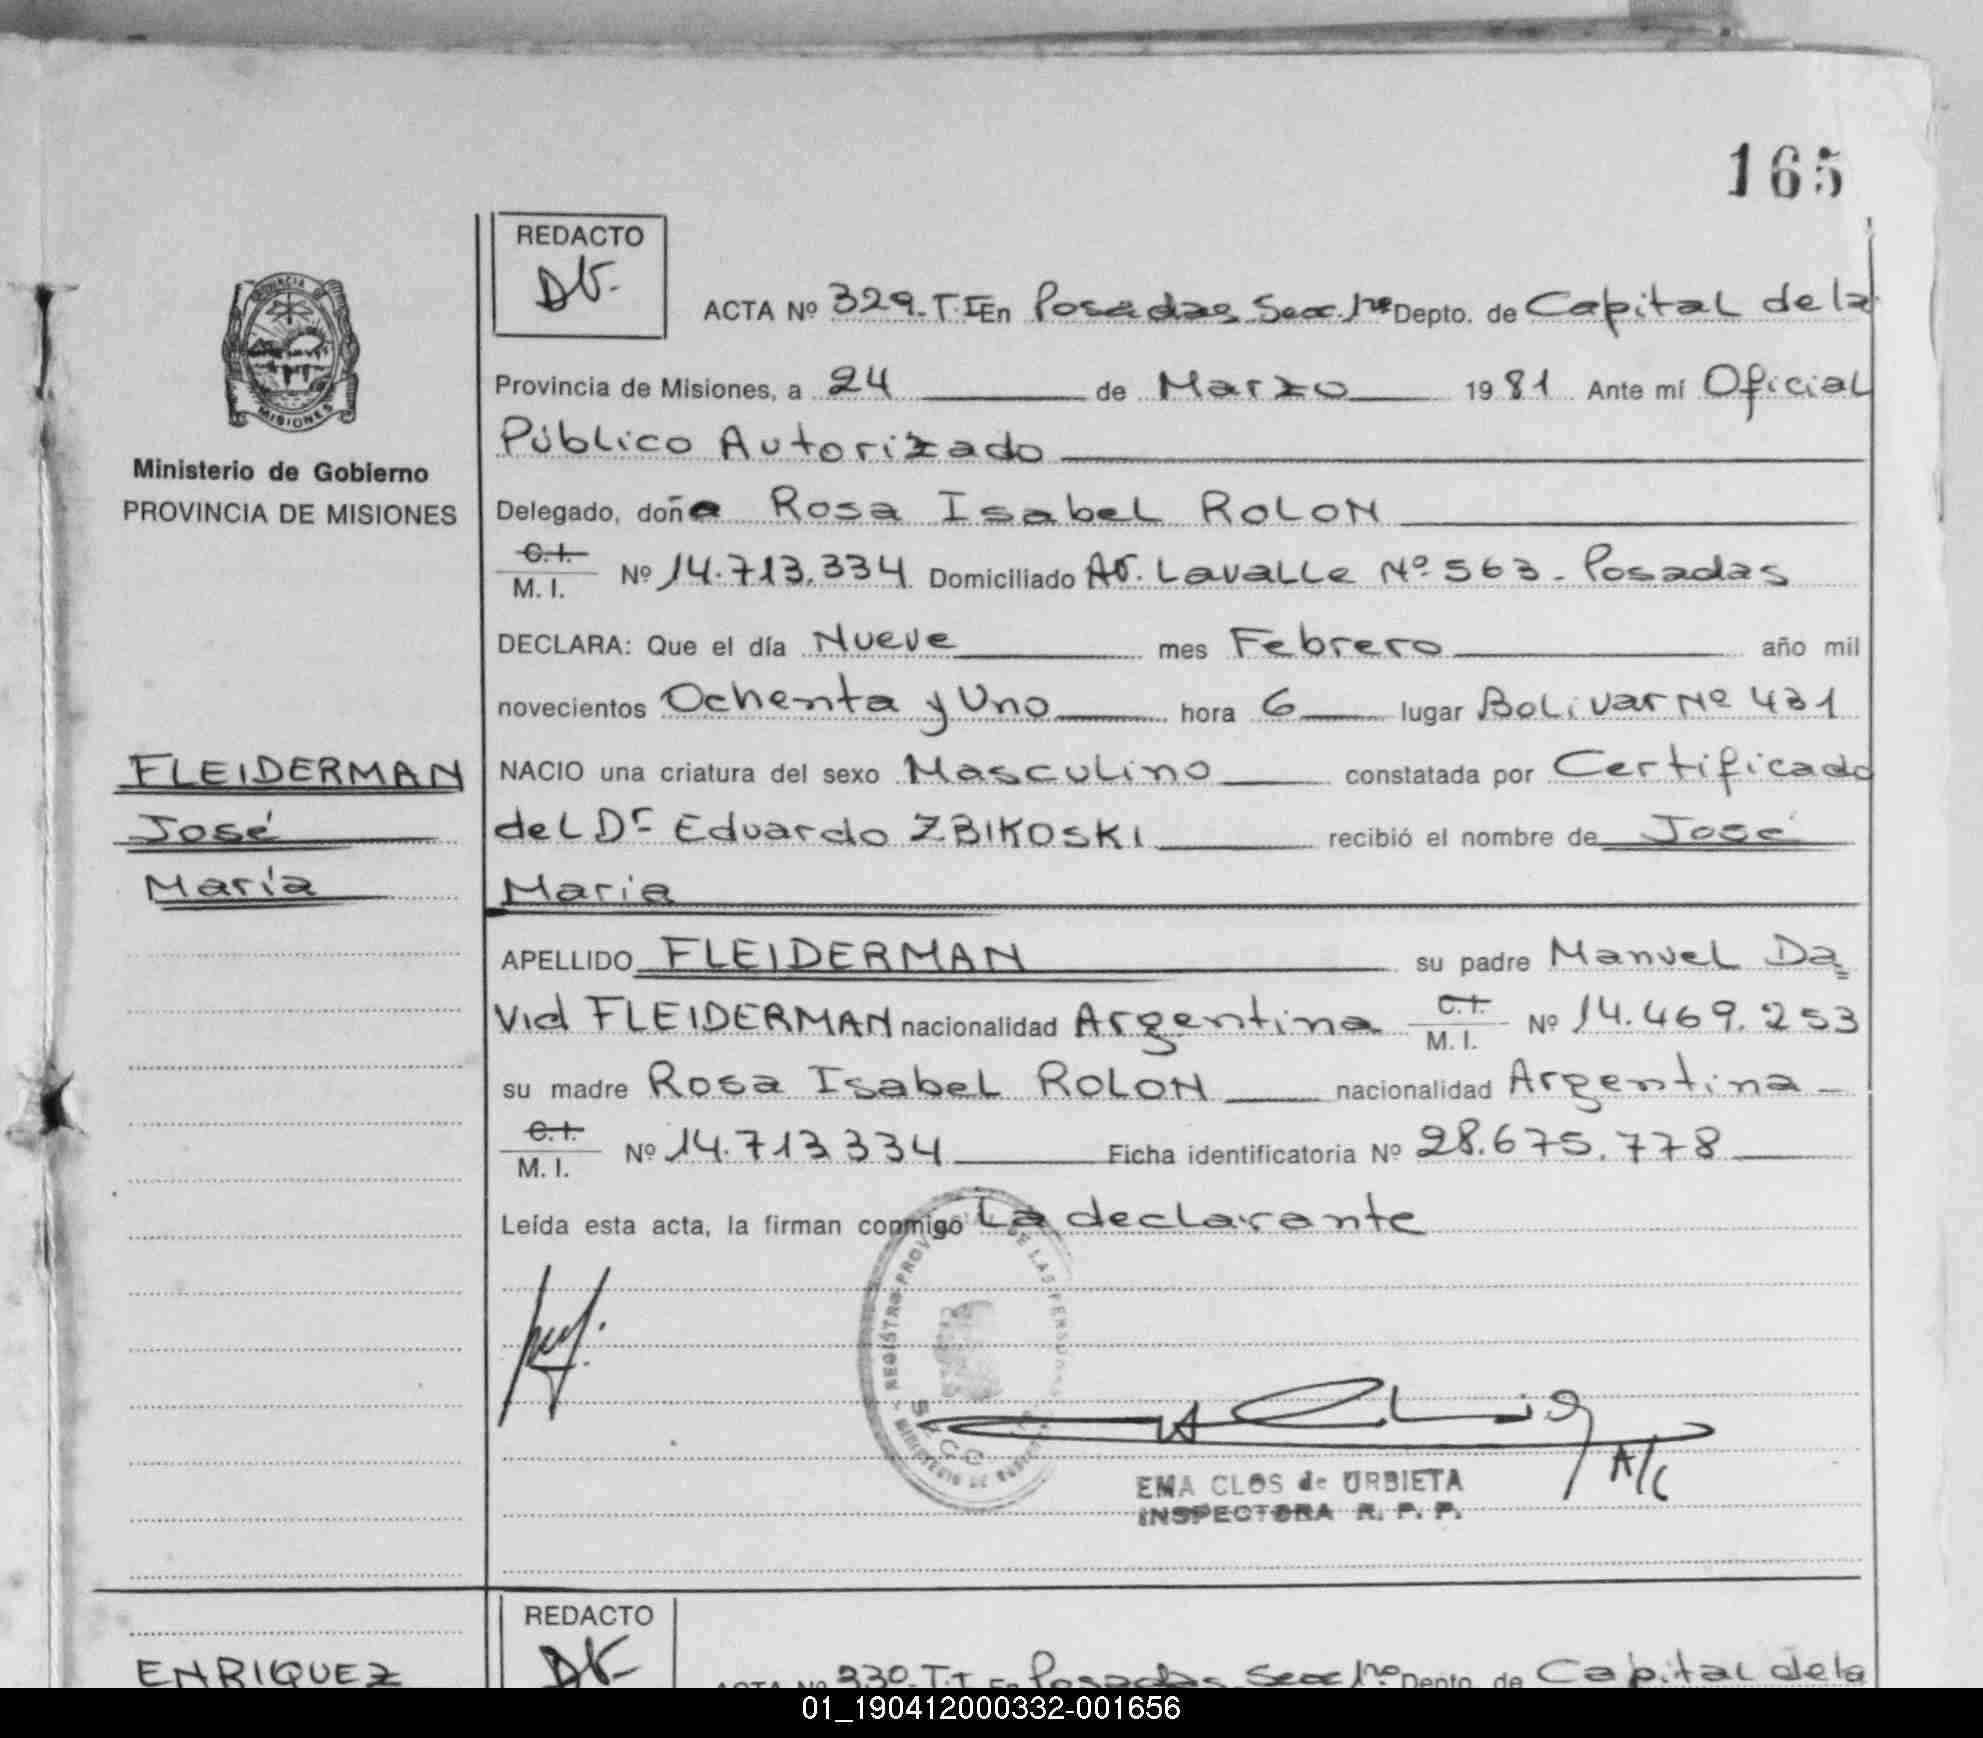 165
REDACTO
DV.
ACTA Nº 329. T.I En Posadas Secc. 1ra Depto. de Capital de la
Provincia de Misiones, a 24 de Marzo 1981 Ante mí Oficial
Público Autorizado
PROVINCIA
MISIONES
Ministerio de Gobierno
PROVINCIA DE MISIONES
Delegado, doña Rosa Isabel ROLON
C.I.
M. I. Nº 14.713.334 Domiciliado Av. Lavalle Nº 563 - Posadas
DECLARA: Que el día Nueve mes Febrero año mil
novecientos Ochenta y Uno hora 6 lugar Bolivar Nº 431
FLEIDERMAN
José
María
NACIO una criatura del sexo Masculino constatada por Certificado
del Dr Eduardo ZBIKOSKI recibió el nombre de José
Maria
APELLIDO FLEIDERMAN su padre Manuel Da=
vid FLEIDERMAN nacionalidad Argentina C.I. M. I. Nº 14.469.253
su madre Rosa Isabel ROLON nacionalidad Argentina -
C.I.
M. I. Nº 14.713.334 Ficha identificatoria Nº 28.675.778
Leída esta acta, la firman conmigo La declarante
REGISTRO PROV DE LAS PERSONAS
SECC
MINISTERIO DE
A/C
EMA CLOS de URBIETA
INSPECTORA R. P. P.
REDACTO
DV-
ENRIQUEZ
ACTA Nº 330. T.I En Posadas Secc 1ra Depto. de Capital de la
01_190412000332-001656